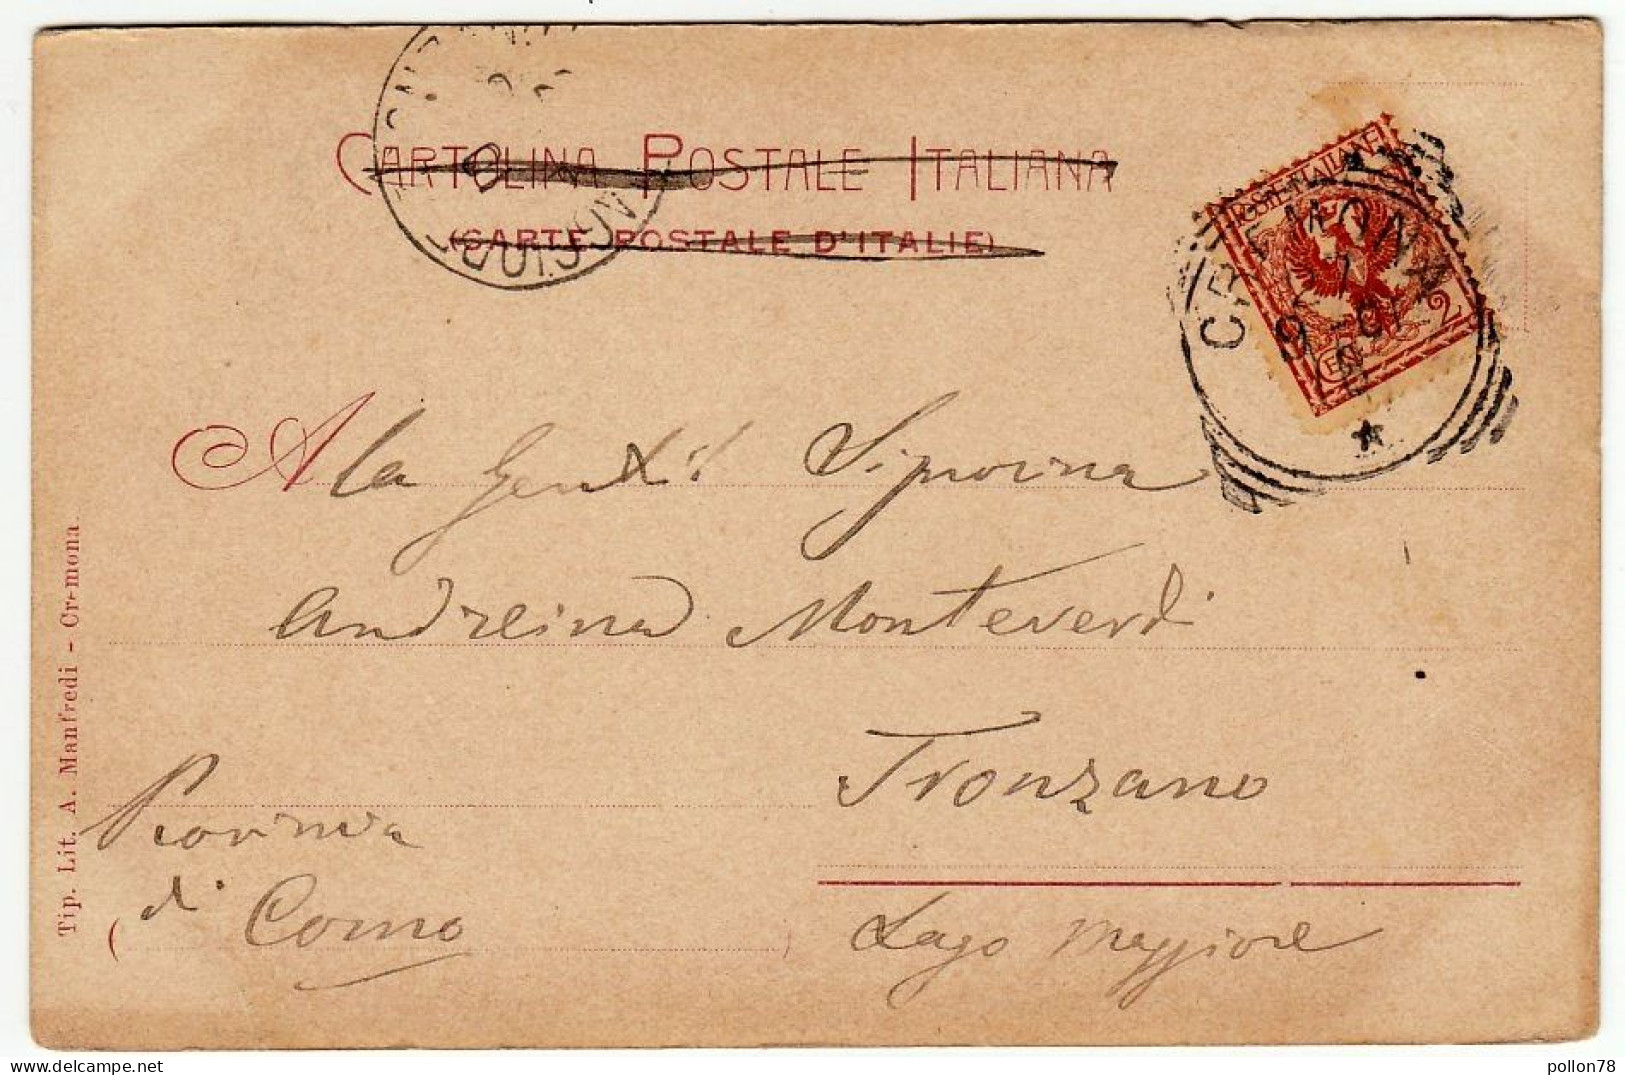 CARTOLINA POSTALE ITALIANA
(CARTE POSTALE D'ITALIE)
POSTE ITALIANE
CENT 2
CREMONA
27
A la Gentil Signorina
Andreina Monteverdi
Tronzano
Lago Maggiore
Provincia
di Como
Tip. Lit. A. Manfredi - Cremona
pollon78